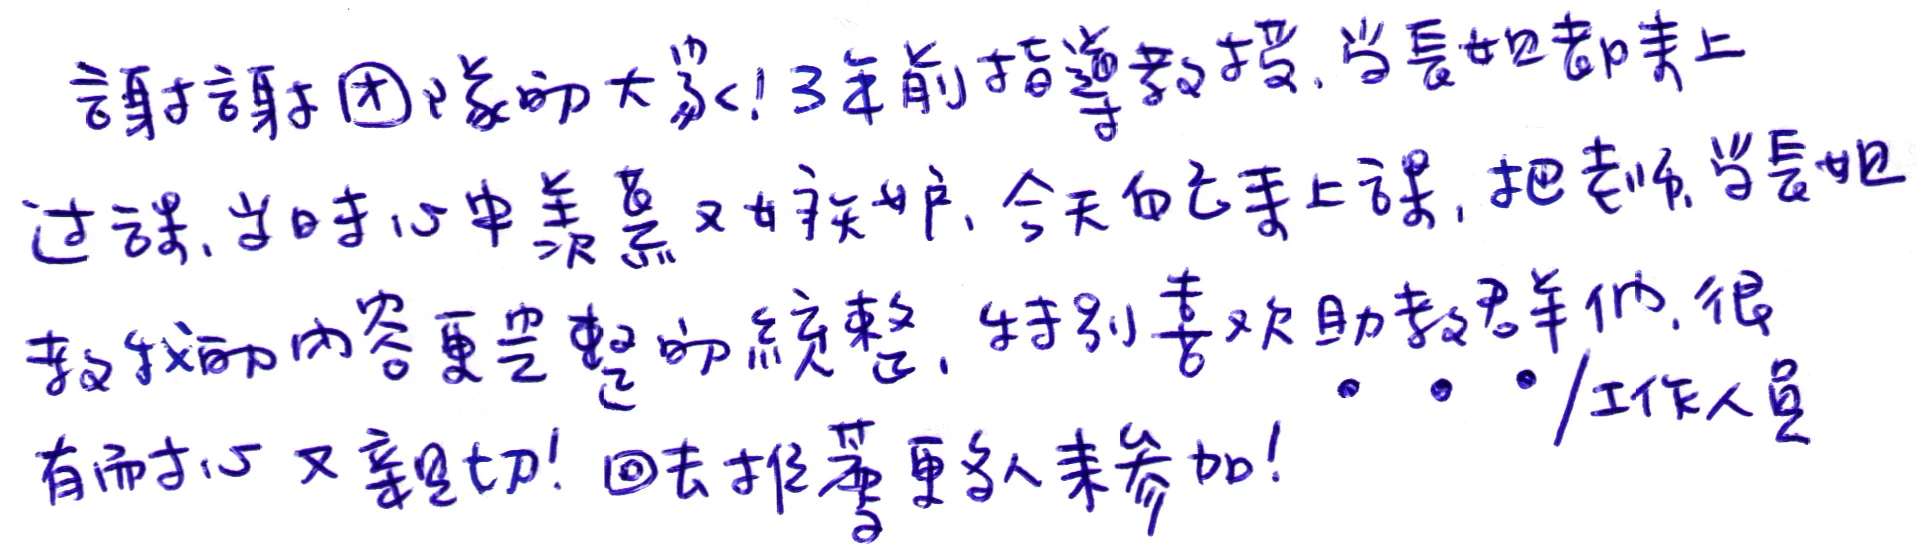 謝謝团隊的大家!3年前指導教授、当長姐都來上
过課、当時心中羨慕又嫉妒、今天自己来上課,把老师、当長姐
教我的內容更完整的統整、特別喜欢助教君羊们、很
有耐心又親切!回去推薦更多人来參加!
/工作人員